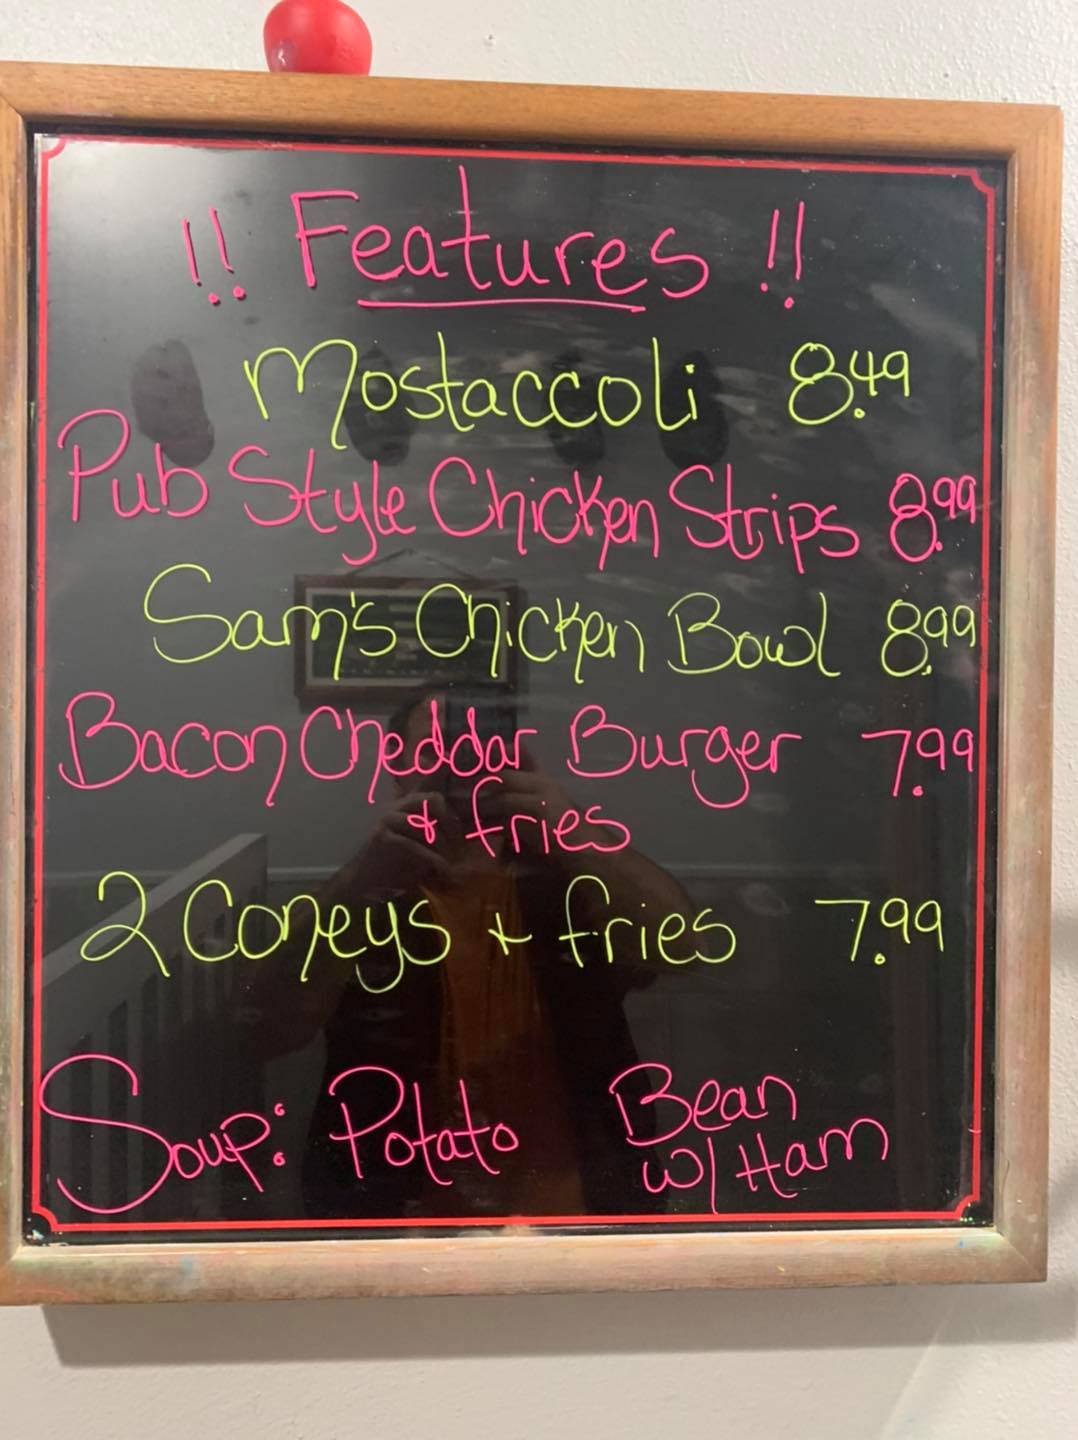 !! Features !!
Mostaccoli 8.49
Pub Style Chicken Strips 8.99
Sam's Chicken Bowl 8.99
Bacon Cheddar Burger 7.99
& fries
2 Coneys + fries 7.99
Soup: Potato Bean
w/ Ham